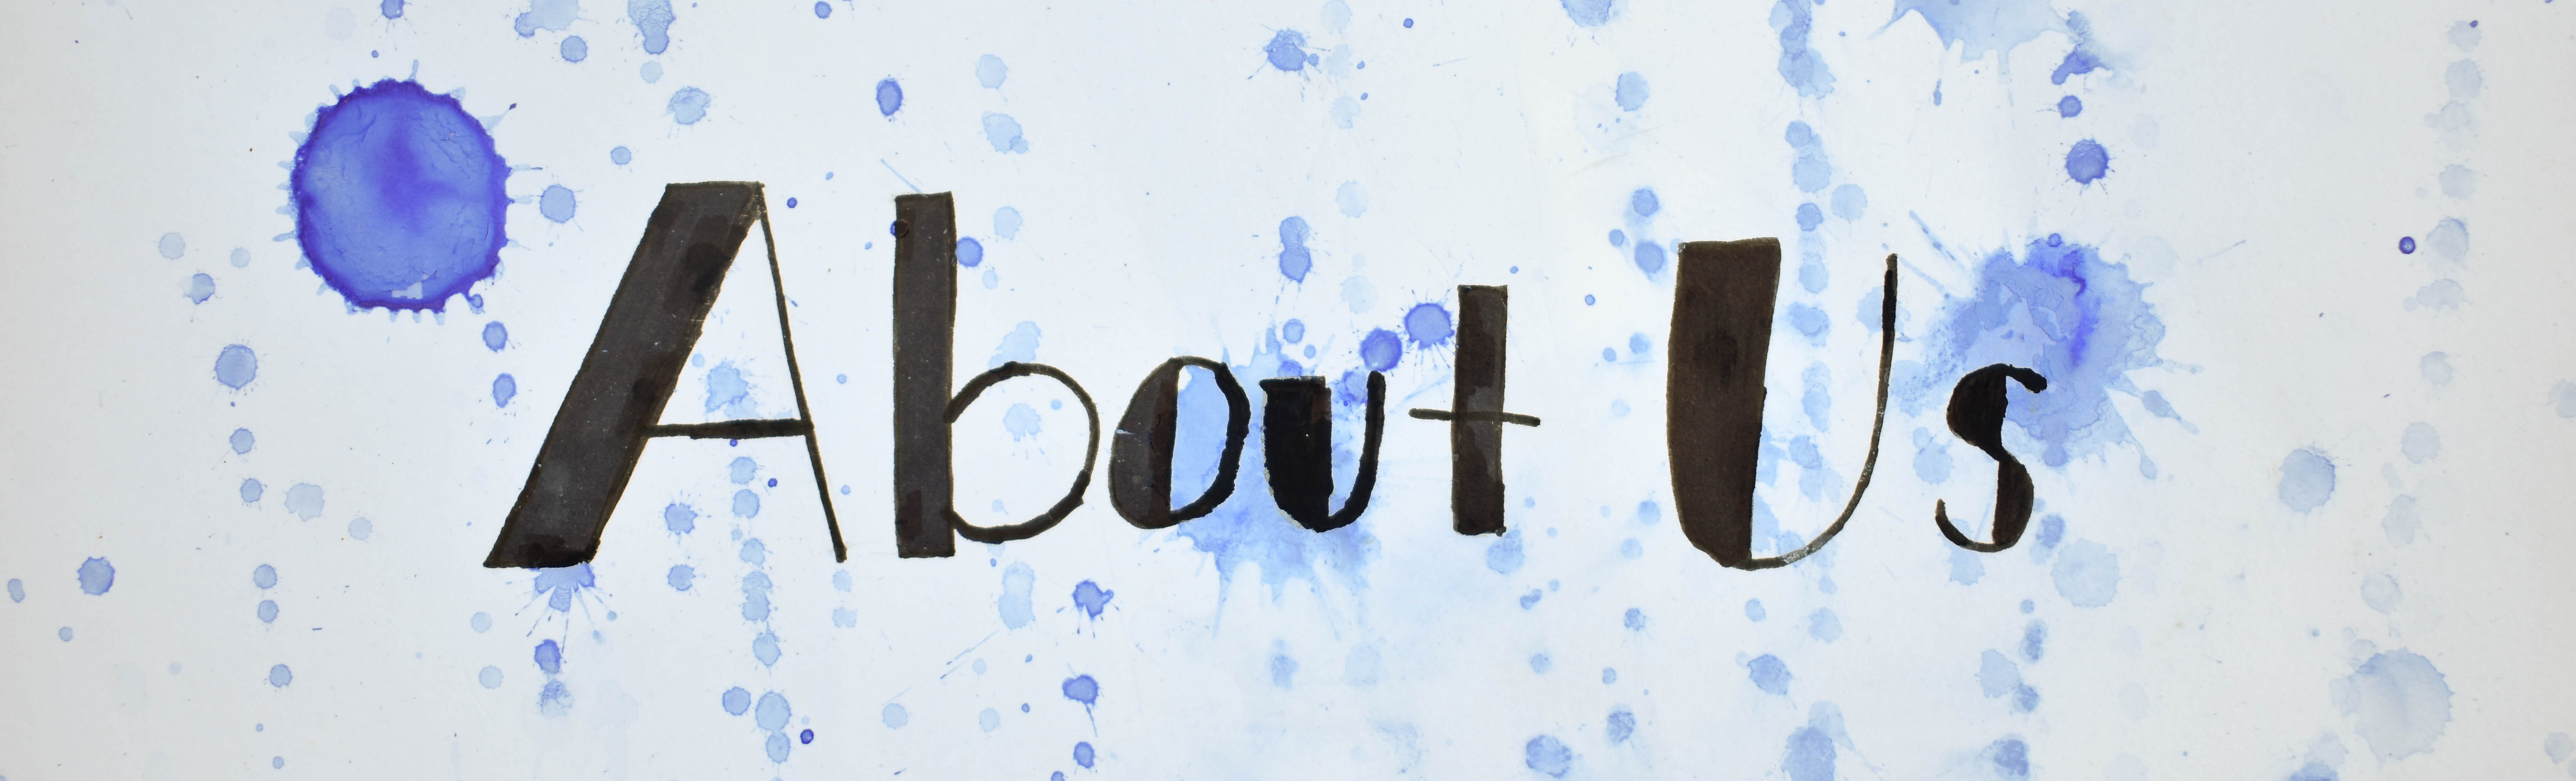 About Us